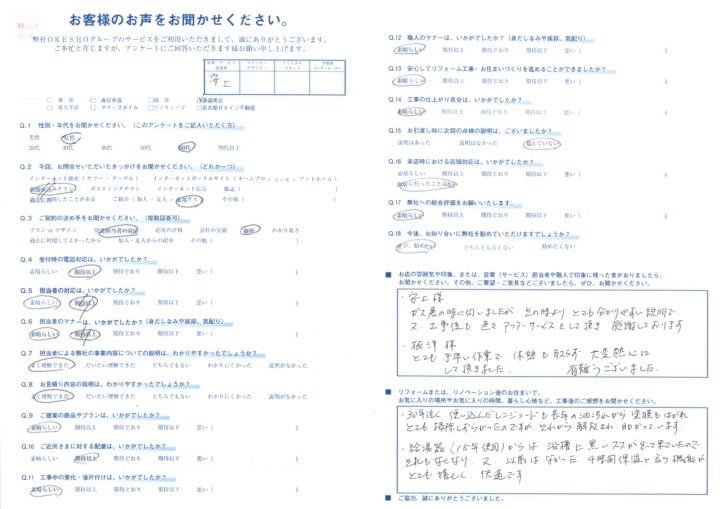 お客様のお声をお聞かせください。
弊社OKESHOグループのサービスをご利用いただきまして、誠にありがとうございます。
ご多忙と存じますが、アンケートにご回答いただきます様お願い申し上げます。
安上
□東店 □春日井店 □緑店
□長久手店 □アイ・スタイル □リノキューブ □名古屋Rエイジ不動産
Q.1 性別・年代をお聞かせください。(このアンケートをご記入いただく方)
男性 女性
20代 30代 40代 50代 60代 70代以上
Q.2 今回、お問合せいただいたきっかけをお聞かせください。(どれか一つ)
インターネット検索(ヤフー・グーグル) インターネットポータルサイト(ホームプロ・スーモ・アットホーム)
新聞折込みチラシ ポスティングチラシ インターネット広告 雑誌( )
過去に利用したことがある ご紹介(知人・友人・東邦ガス) その他( )
Q.3 ご契約の決め手をお聞かせください。(複数回答可)
プラン or デザイン 営業担当者の対応 お店の評判 会社の実績 価格 わかり易さ
過去に利用してよかったから 知人・友人からの紹介 その他( )
Q.4 受付時の電話対応は、いかがでしたか?
素晴らしい 期待以上 期待どおり 期待以下 悪い( )
Q.5 担当者の対応は、いかがでしたか?
素晴らしい 期待以上 期待どおり 期待以下 悪い( )
Q.6 担当者のマナーは、いかがでしたか?(身だしなみや挨拶、気配り)
素晴らしい 期待以上 期待どおり 期待以下 悪い( )
Q.7 担当者による弊社の事業内容についての説明は、わかりやすかったでしょうか?
よく理解できた だいたい理解できた どちらでもない わかりにくかった 説明がなかった
Q.8 お見積り内容の説明は、わかりやすかったでしょうか?
よく理解できた だいたい理解できた どちらでもない わかりにくかった 説明がなかった
Q.9 ご提案の商品やプランは、いかがでしたか?
素晴らしい 期待以上 期待どおり 期待以下 悪い( )
Q.10 ご近所さまに対する配慮は、いかがでしたか?
素晴らしい 期待以上 期待どおり 期待以下 悪い( )
Q.11 工事中の美化・後片付けは、いかがでしたか?
素晴らしい 期待以上 期待どおり 期待以下 悪い( )
Q.12 職人のマナーは、いかがでしたか?(身だしなみや挨拶、気配り)
素晴らしい 期待以上 期待どおり 期待以下 悪い( )
Q.13 安心してリフォーム工事・お住まいづくりを進めることができましたか?
素晴らしい 期待以上 期待どおり 期待以下 悪い( )
Q.14 工事の仕上がり具合は、いかがでしたか?
素晴らしい 期待以上 期待どおり 期待以下 悪い( )
Q.15 お引渡し時に次回の点検の説明は、ございましたか?
説明はあった 説明はなかった 覚えていない
Q.16 来店時における店頭対応は、いかがでしたか?
素晴らしい 期待以上 期待どおり 期待以下 悪い( )
お店に行ったことはない
Q.17 弊社への総合評価をお願いいたします。
素晴らしい 期待以上 期待どおり 期待以下 悪い( )
Q.18 今後、お知り合いに弊社を勧めていただけますでしょうか?
ぜひ、勧めたい どちらとも言えない 勧めたくない
■ お店の雰囲気や印象、または、営業(サービス)担当者や職人で印象に残った者がおりましたら、
お聞かせください。その他、ご要望・ご意見などございましたら、ぜひ、お聞かせください。
・安上様
ガス展の時に伺いましたが その時より とても分かりやすい説明で
又、工事後も 色々アフターサービスとして頂き 感謝しております
・板津様
とても 手早い作業で、休憩も取らず 大変熱心に
して頂きました。 有難うございました。
■ リフォームまたは、リノベーション後のお住まいで、
お気に入りの場所やお気に入りの時間、暮らし心地など、工事後のご感想をお聞かせください。
・30年近く使い込んだレンジフードも長年の油汚れから塗膜もはがれ
とても掃除しずらかったのですが、それから解放され、助かっています
・給湯器(15年使用)からは浴槽に黒いススが出て来ていたので
それもなくなり、又、以前はなかった4時間保温と言う機能が
とても嬉しく、快適です。
■ ご協力、誠にありがとうございました。